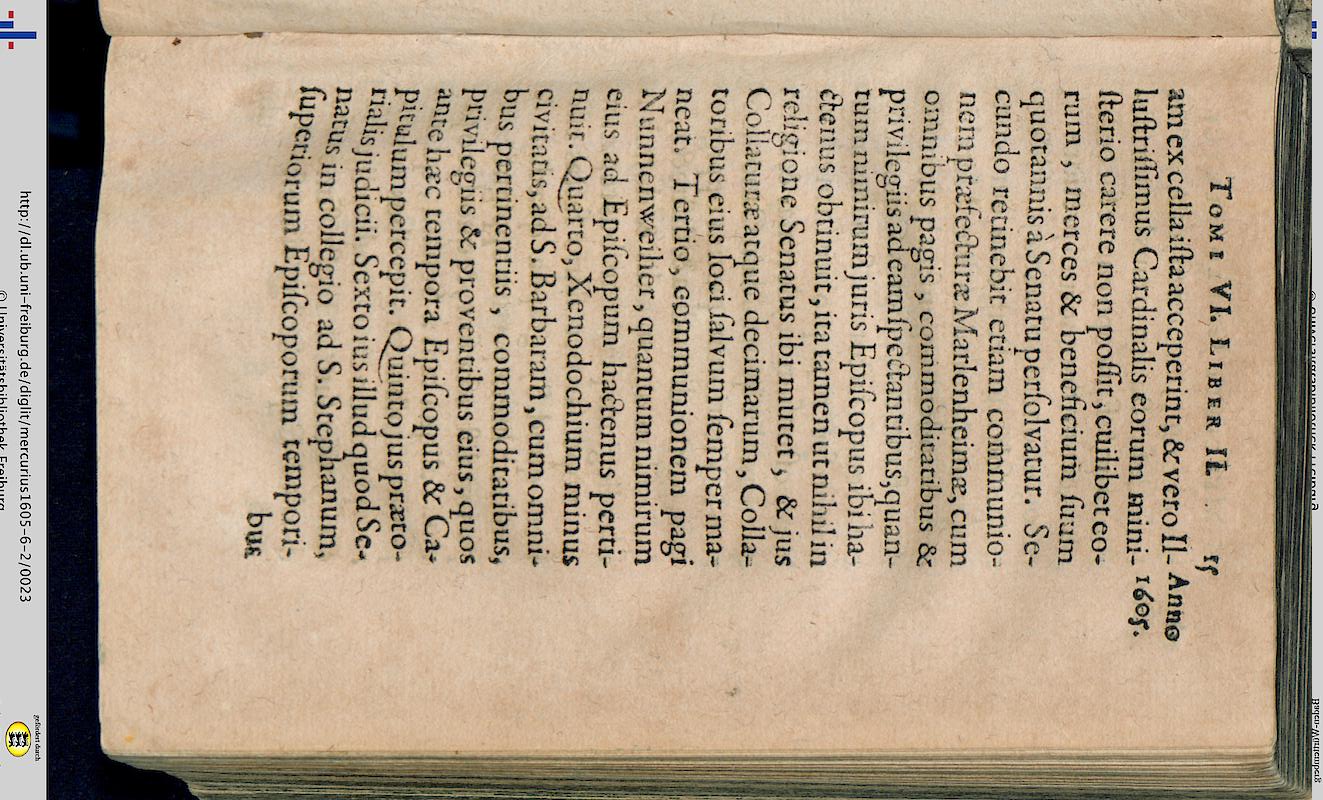 TOMI VI. LIBER II. 15
am ex cella ista acceperint, & vero Il- Anno
lustrissimus Cardinalis eorum mini- 1605.
sterio carere non possit, cuilibet eo-
rum, merces & beneficium suum
quotannis à Senatu persolvatur. Se-
cundo retinebit etiam communio-
nem præfecturæ Marlenheimæ, cum
omnibus pagis, commoditatibus &
privilegiis ad eam spectantibus, quan-
tum nimirum juris Episcopus ibi ha-
ctenus obtinuit, ita tamen ut nihil in
religione Senatus ibi mutet, & jus
Collaturæ atque decimarum, Colla-
toribus eius loci salvum semper ma-
neat. Tertio, communionem pagi
Nunnenweiher, quantum nimirum
eius ad Episcopum hactenus perti-
nuit. Quarto, Xenodochium minus
civitatis, ad S. Barbaram, cum omni-
bus pertinentiis, commoditatibus,
privilegiis & proventibus eius, quos
ante hæc tempora Episcopus & Ca-
pitulum percepit. Quinto jus præto-
rialis judicii. Sexto ius illud quod Se-
natus in collegio ad S. Stephanum,
superiorum Episcoporum tempori-
bus
http://dl.ub.uni-freiburg.de/diglit/mercurius1605-6-2/0023
© Universitätsbibliothek Freiburg
gefördert durch